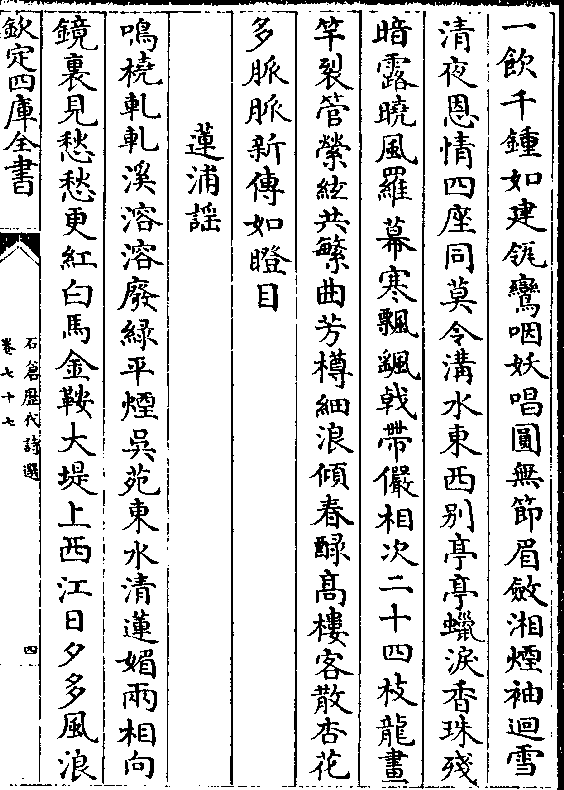 一飲千鍾如建瓴鸞咽妖唱圓無節眉斂湘煙袖迴雪
清夜恩情四座同莫令溝水東西别亭亭蠟淚香珠殘
暗露曉風羅幕寒飄颻戟帶儼相次二十四枝龍畫
竿裂管縈絃共繁曲芳樽細浪傾春醁高樓客散杏花
多脈脈新傳如瞪目
蓮浦謡
鳴橈軋軋溪溶溶廢綠平煙吳苑東水清蓮媚兩相向
鏡裏見愁愁更紅白馬金鞍大堤上西江日夕多風浪
欽定四庫全書
石倉歴代詩選
卷七十七
四